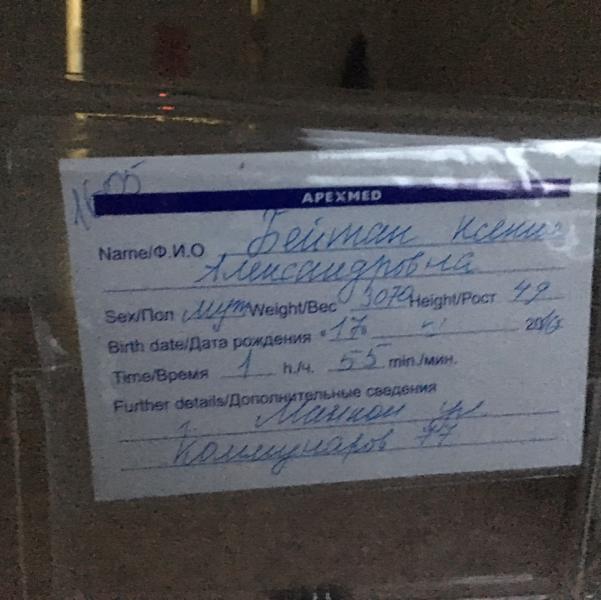 APEXMED
Name/Ф.И.О Бейтан Ксения
Александровна
Sex/Пол муж Weight/Вес 3070 Height/Рост 49
Birth date/Дата рождения "17"
Time/Время 1 h./ч. 55 min./мин.
Further details/Дополнительные сведения
Коммунаров 77